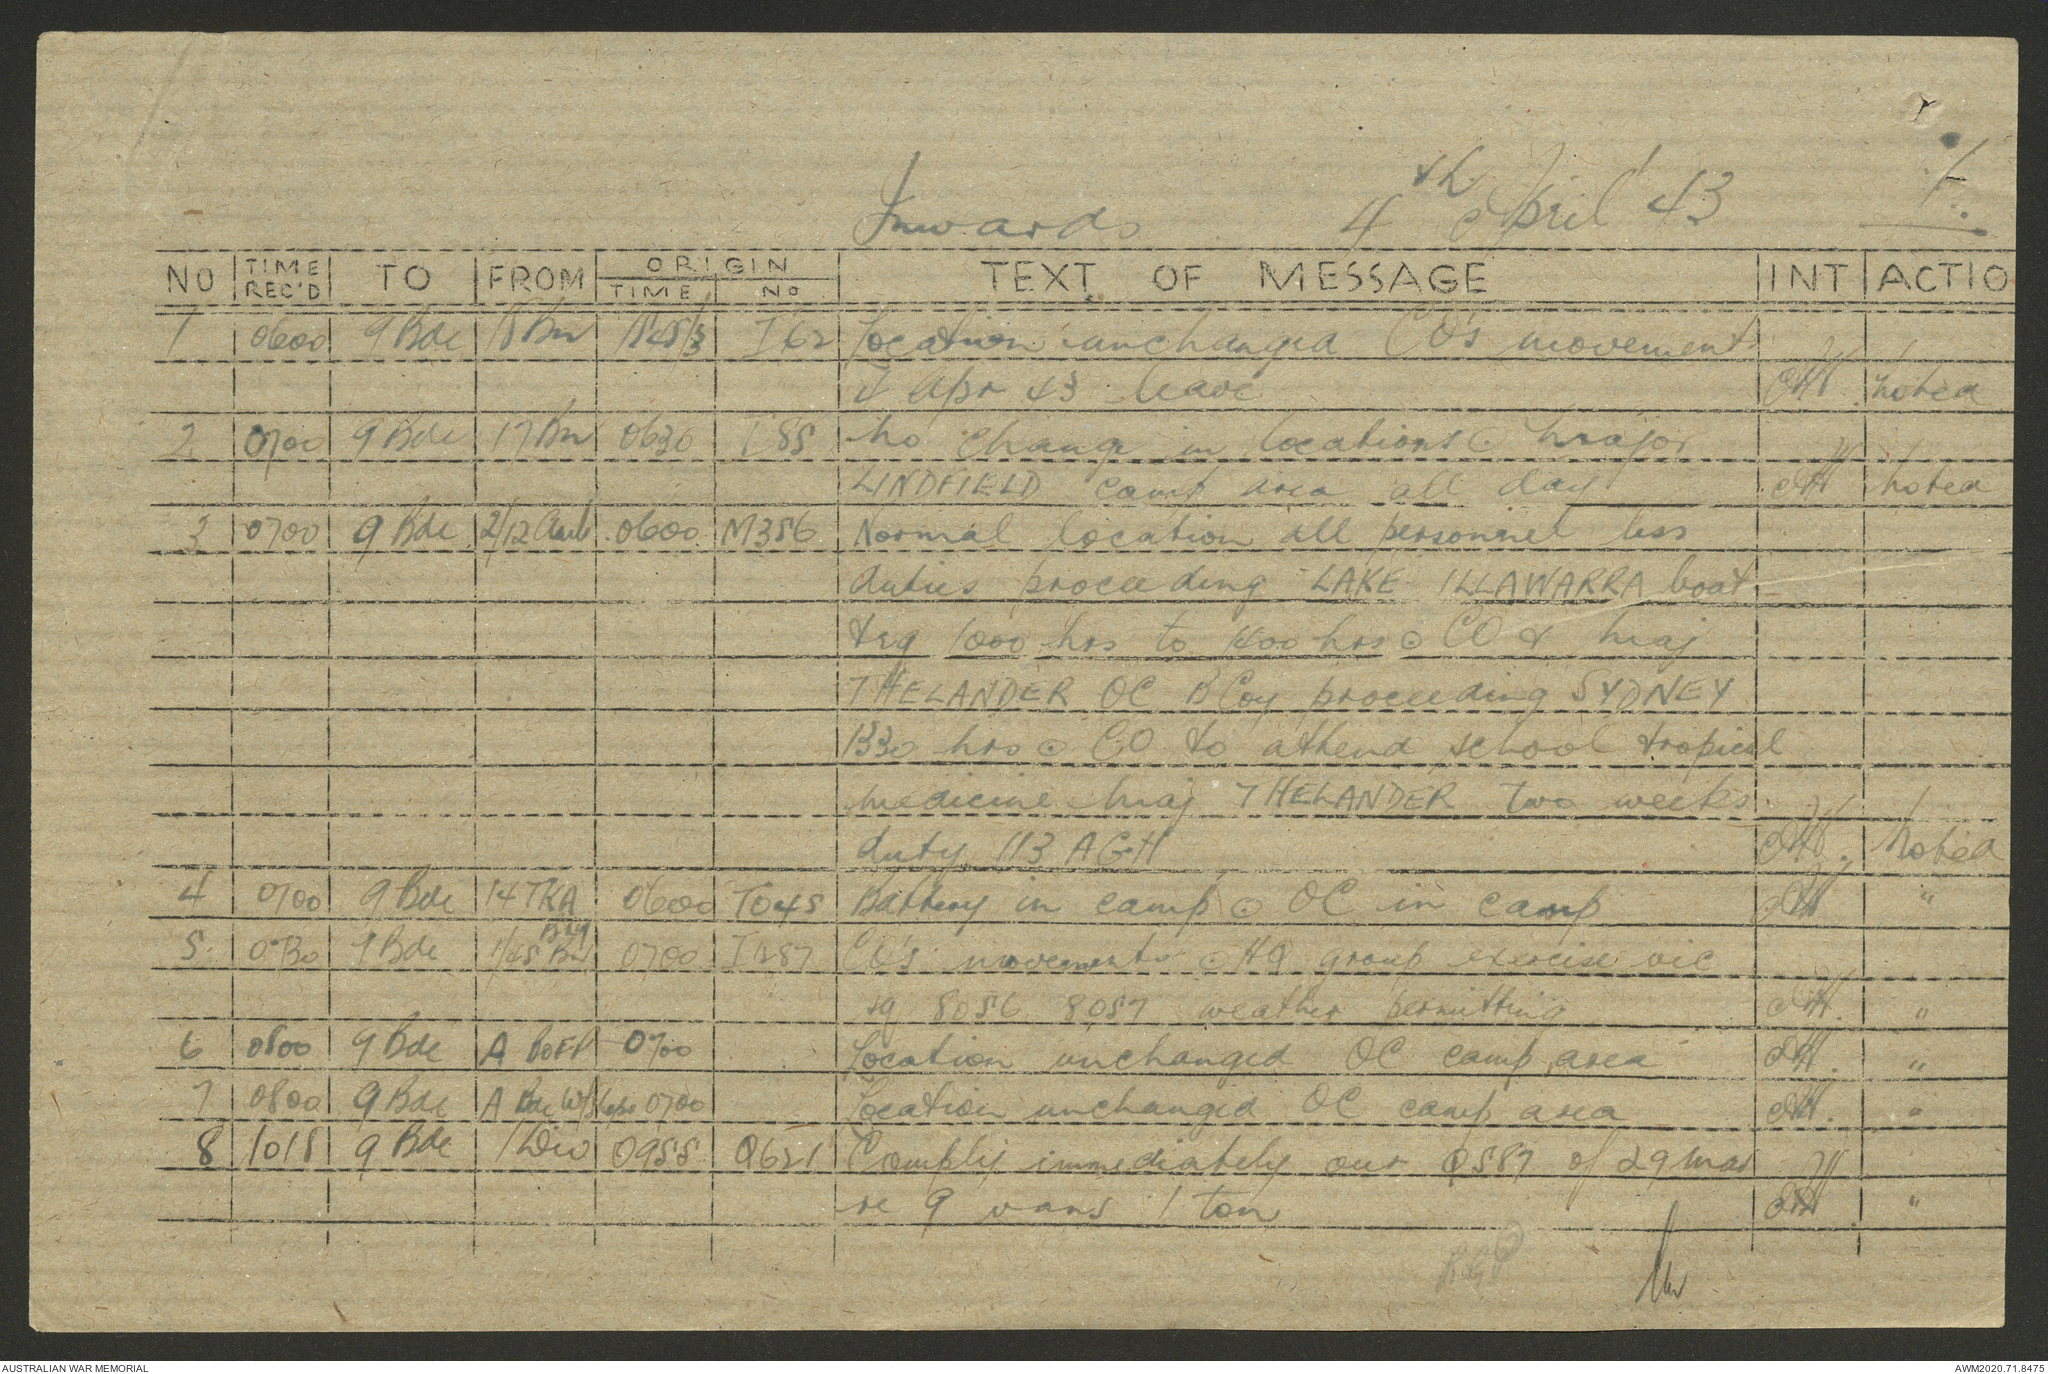 Inwards 4th April '43 1.
NO TIME REC'D TO FROM ORIGIN TIME NO TEXT OF MESSAGE INT ACTIO
1 0600 9 Bde 18 Bn I62 Location unchanged CO's movement
4 Apr 43 leave Noted
2 0700 9 Bde 17 Bn 0630 I85 No change in locations ⊙ Major
LINDFIELD camp area all day Noted
3 0700 9 Bde 2/12 Amb 0600 M356 Normal location all personnel less
duties proceeding LAKE ILLAWARRA boat
trg 1000 hrs to 1400 hrs ⊙ CO & Maj
THELANDER OC B Coy proceeding SYDNEY
1330 hrs ⊙ CO to attend school tropical
medicine Maj THELANDER two weeks
duty 113 AGH Noted
4 0700 9 Bde 14 TKA 0600 TO45 Battery in camp ⊙ OC in camp "
Bty
5 0730 9 Bde 1/45 Bn 0700 CO's movements ⊙ HQ group exercise vic
sq 8056 8057 weather permitting "
6 0800 9 Bde A 0700 Location unchanged OC camp area "
7 0800 9 Bde A Bde W/shops 0700 Location unchanged OC camp area "
8 1018 9 Bde 1 Div 0955 Q621 Comply immediately our Q587 of 29 Mar
re 9 vans 1 ton "
AUSTRALIAN WAR MEMORIAL AWM2020.71.8475